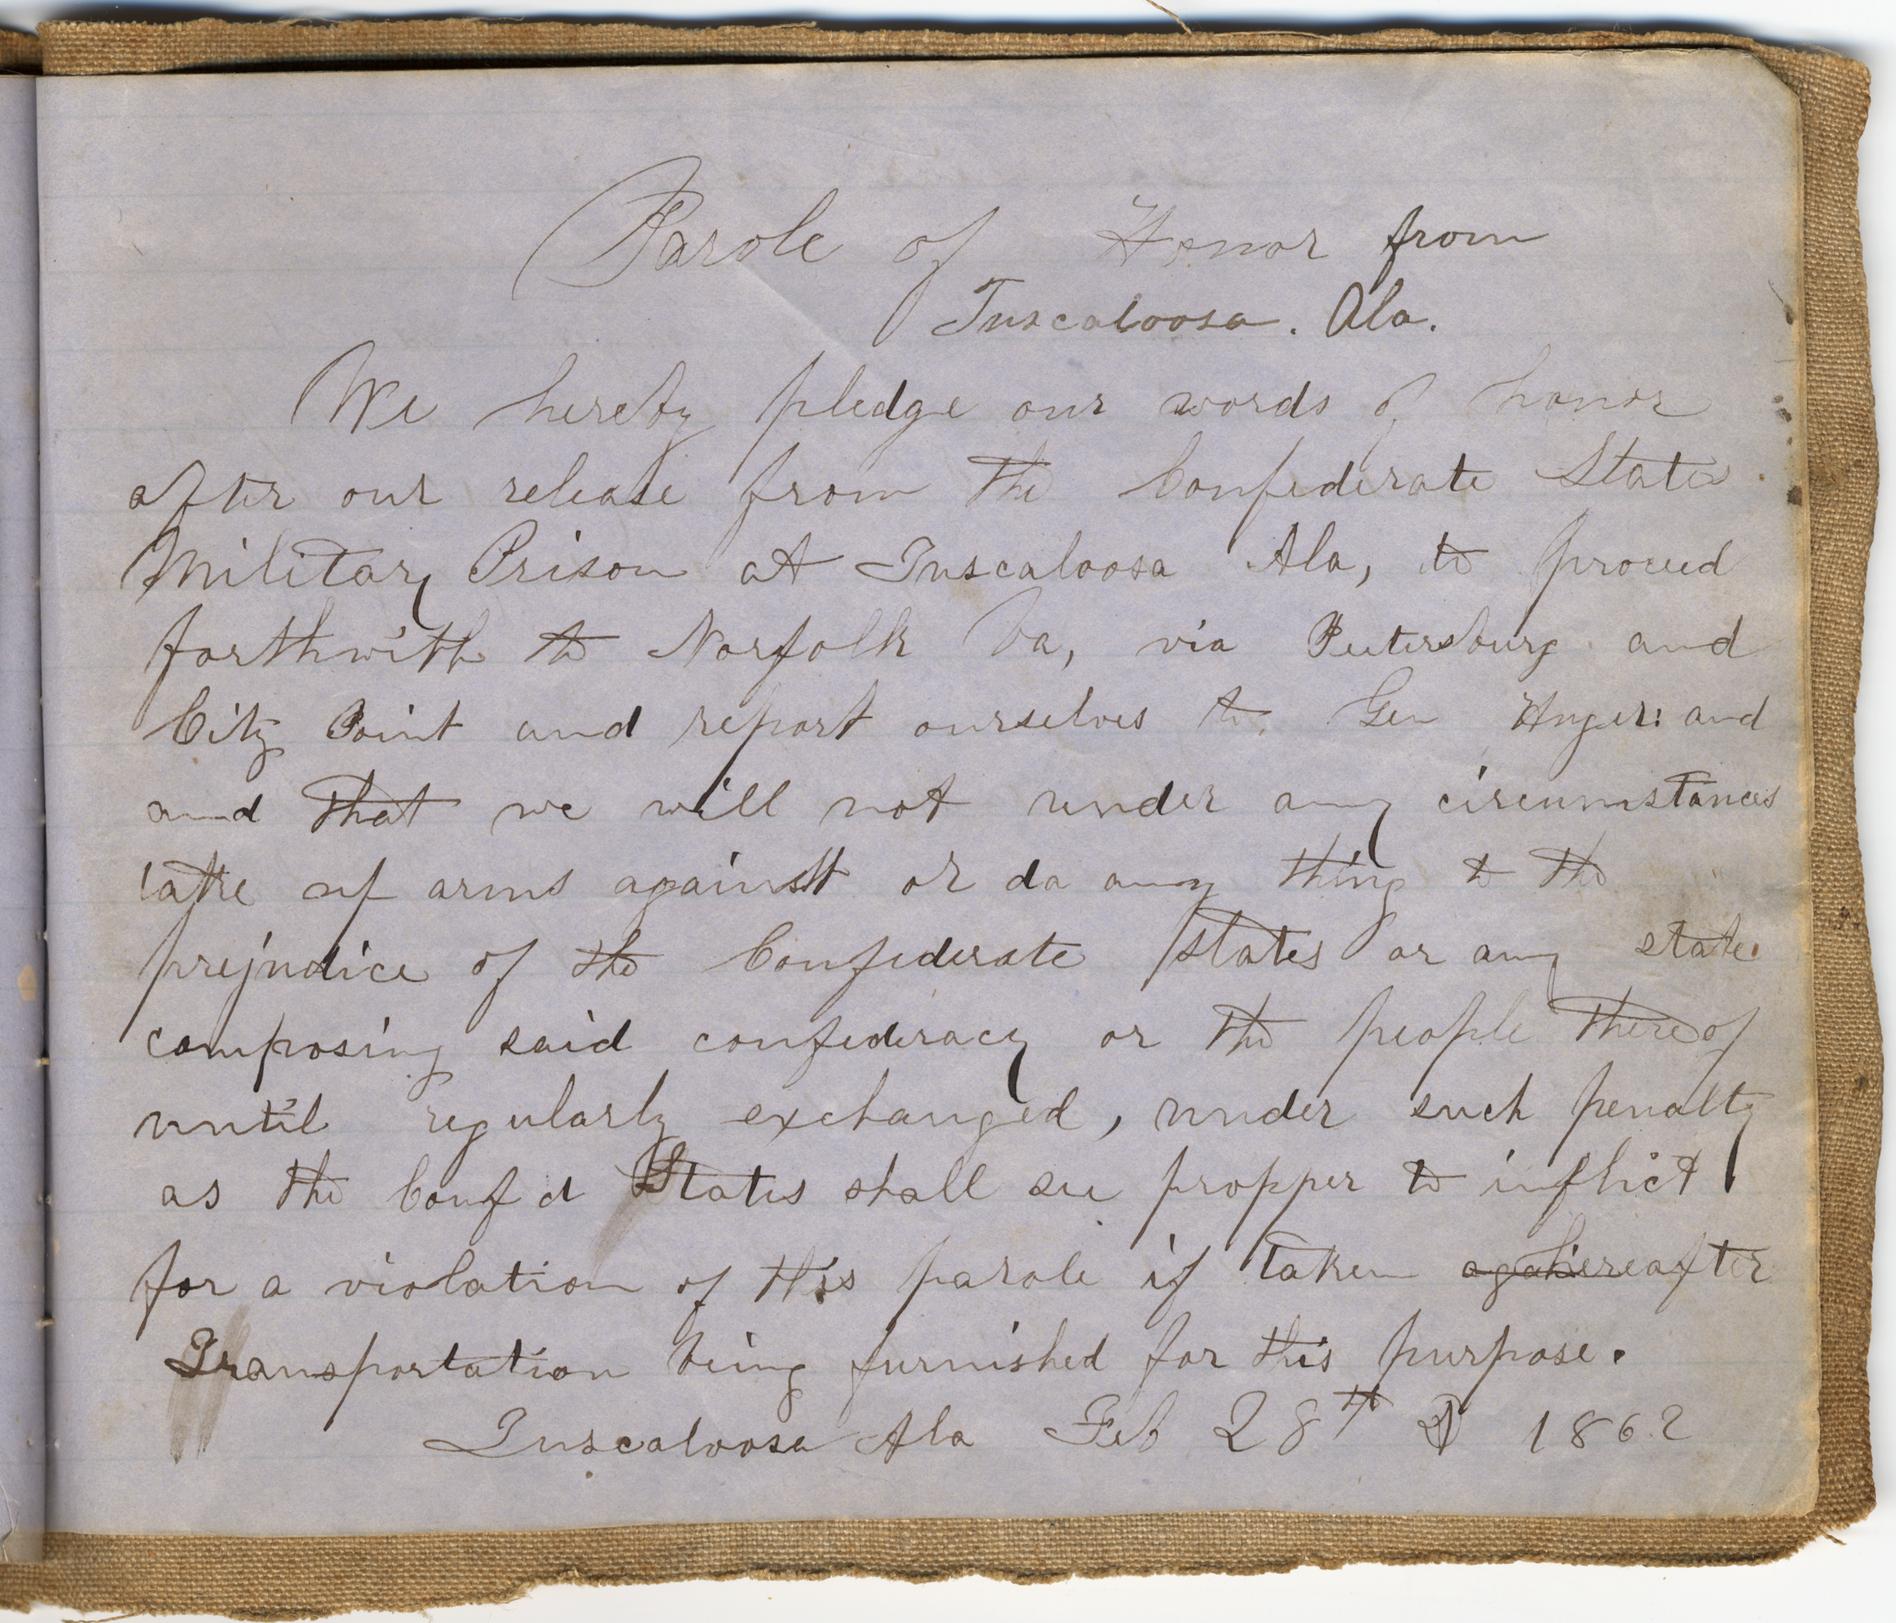 Parole of Honor from
Tuscaloosa. Ala.
We hereby pledge our words of honor
after our release from the Confederate States
Military Prison at Tuscaloosa Ala, to proceed
forthwith to Norfolk Va, via Peutersburg and
City Point and report ourselves to Gen Huger: and
and that we will not under any circumstances
take up arms against or do any thing to the
prejudice of the Confederate States or any state
composing said confederacy or the people thereof
until regularly exchanged, under such penalty
as the Conf d States shall see propper to inflict
for a violation of this parole if taken hereafter
Transportation being furnished for this purpose.
Tuscaloosa Ala Feb 28th 1862